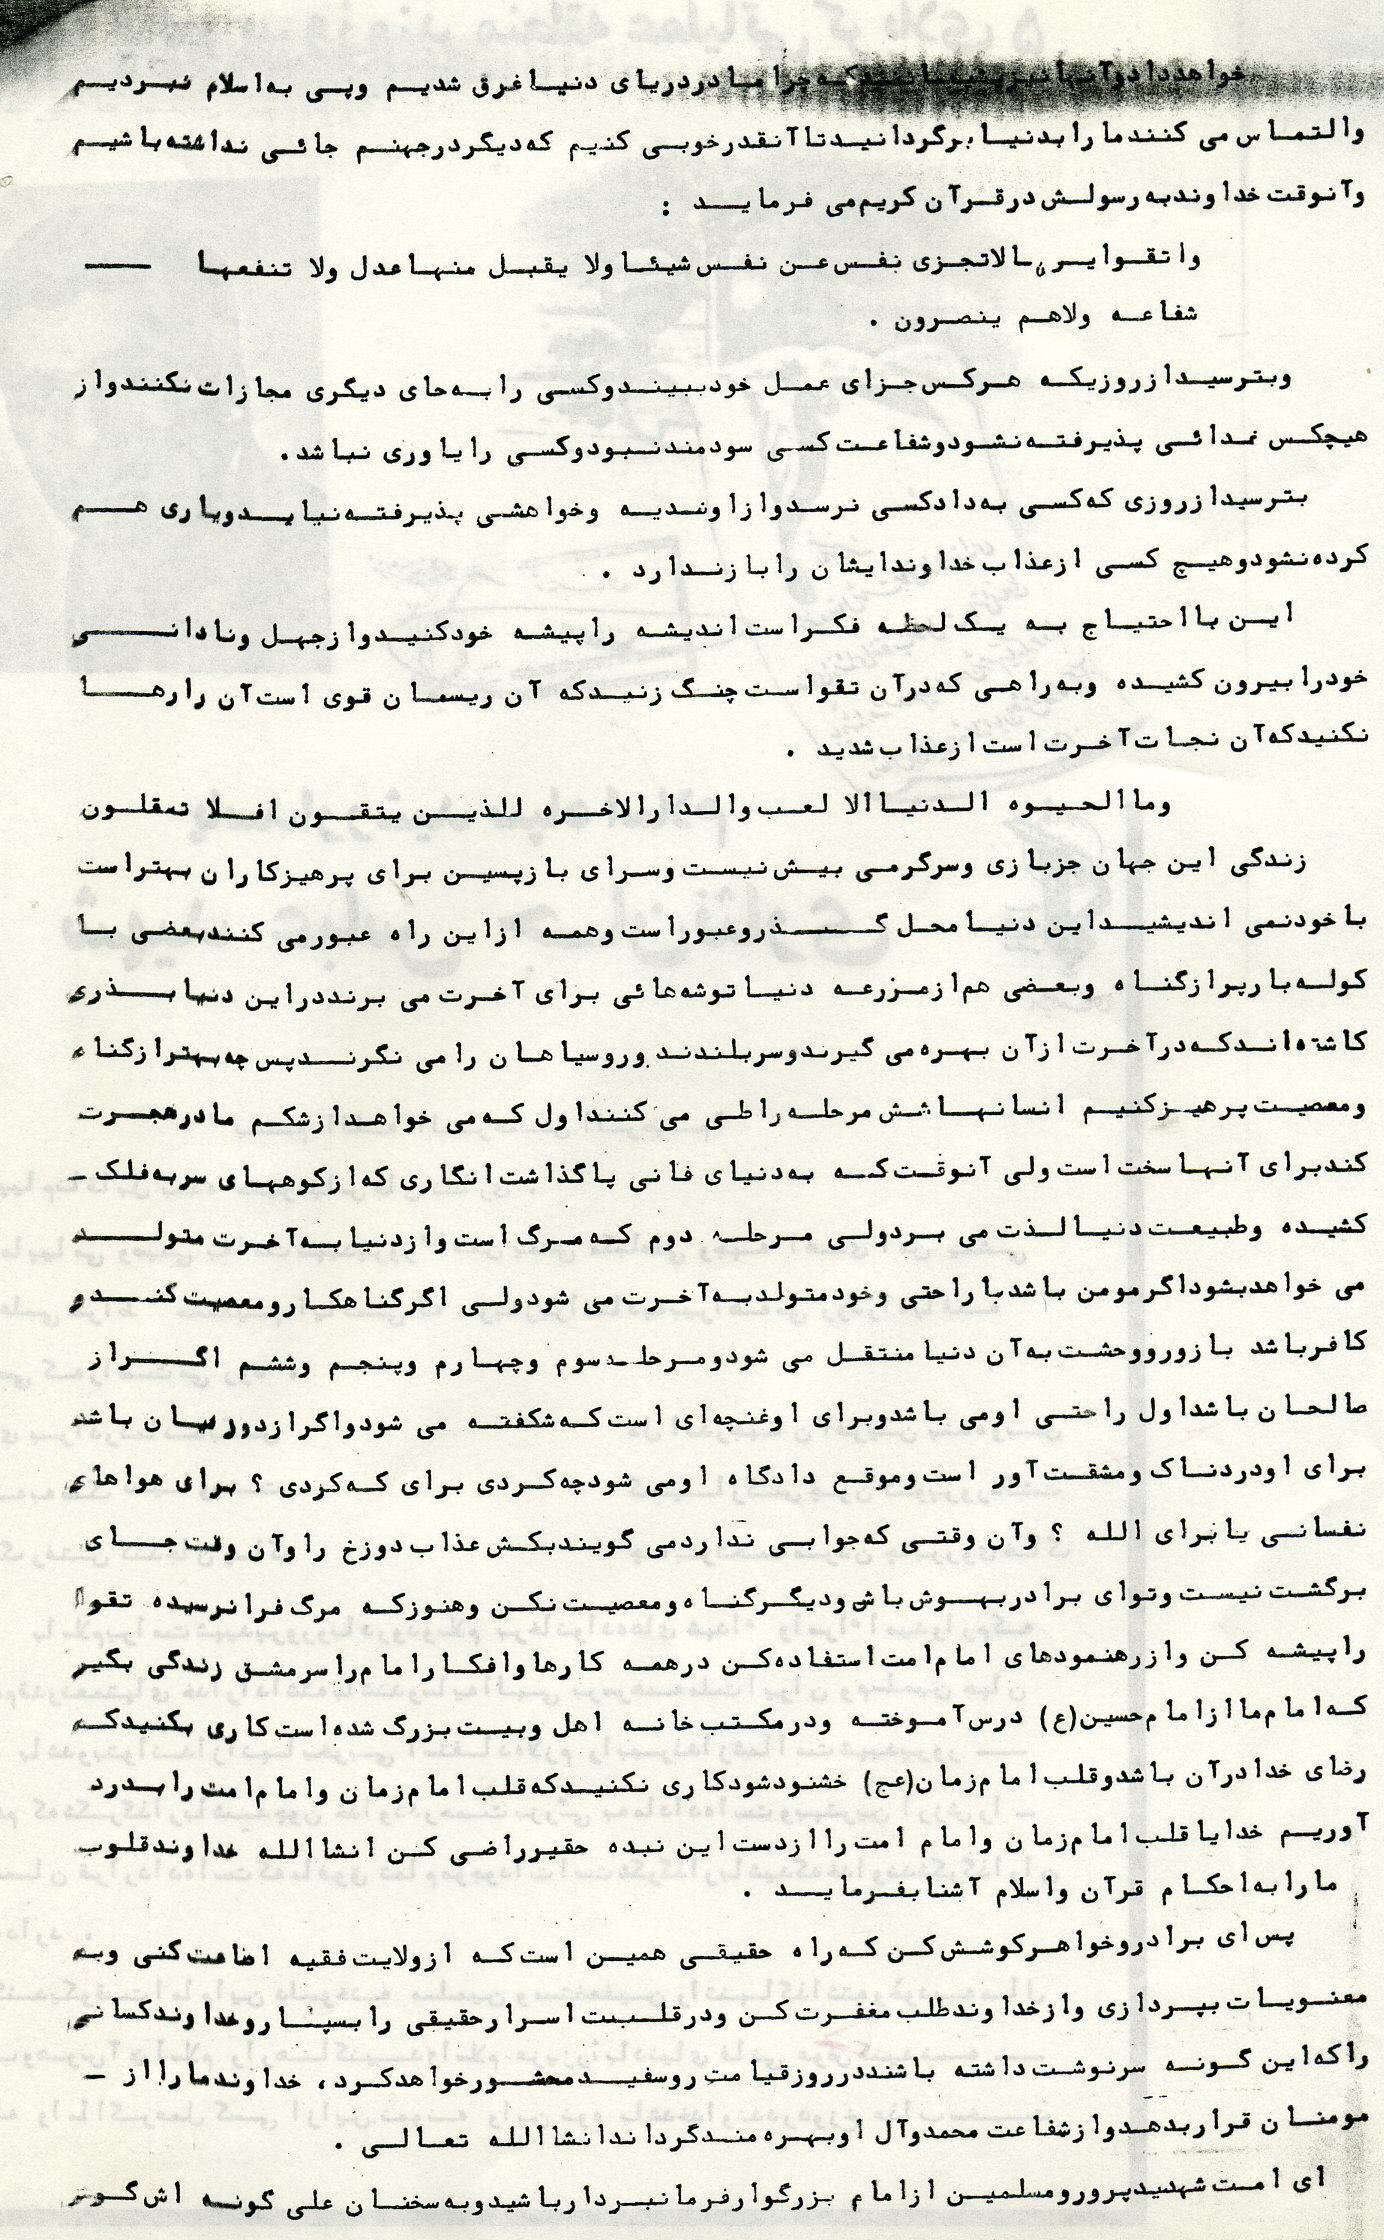 خواهد داد و آنها نیز پشیمانند که چرا ما در دریای دنیا غرق شدیم وپی به اسلام نبردیم
والتماس می کنند ما را بدنیا برگردانید تا آنقدر خوبی کنیم که دیگر درجهنم جائی نداشته باشیم
وآنوقت خداوند به رسولش در قرآن کریم می فرماید :
واتقوا یوما لاتجزی نفس عن نفس شیئا ولا یقبل منها عدل ولا تنفعها —
شفاعه ولاهم ینصرون .
وبترسید از روزیکه هرکس جزای عمل خود ببیند وکسی را به جای دیگری مجازات نکنند واز
هیچکس فدائی پذیرفته نشود وشفاعت کسی سودمند نبود وکسی را یاوری نباشد.
بترسید از روزی که کسی به داد کسی نرسد و از او فدیه وخواهشی پذیرفته نیاید ویاری هم
کرده نشود وهیچ کسی از عذاب خداوند ایشان را باز ندارد .
این با احتیاج به یک لحظه فکر است اندیشه را پیشه خود کنید واز جهل ونادانی
خود را بیرون کشیده وبه راهی که درآن تقواست چنگ زنید که آن ریسمان قوی است آن را رها
نکنید که آن نجات آخرت است از عذاب شدید .
وما الحیوه الدنیا الا لعب والدار الاخره للذین یتقون افلا تعقلون
زندگی این جهان جز بازی وسرگرمی بیش نیست وسرای بازپسین برای پرهیزکاران بهتر است
با خود نمی اندیشید این دنیا محل گذر وعبور است وهمه از این راه عبور می کنند بعضی با
کوله بار پر از گناه وبعضی هم از مزرعه دنیا توشه هائی برای آخرت می برند در این دنیا بذری
کاشته اند که در آخرت از آن بهره می گیرند وسربلندند وروسیاهان را می نگرند پس چه بهتر از گناه
ومعصیت پرهیز کنیم انسانها شش مرحله را طی می کنند اول که می خواهد از شکم مادر هجرت
کند برای آنها سخت است ولی آنوقت که به دنیای فانی پا گذاشت انگاری که از کوههای سربه فلک -
کشیده وطبیعت دنیا لذت می برد ولی مرحله دوم که مرگ است واز دنیا به آخرت متولد
می خواهد بشود اگر مومن باشد با راحتی وخود متولد به آخرت می شود ولی اگر گناهکار ومعصیت کند و
کافر باشد با زور ووحشت به آن دنیا منتقل می شود ومرحله سوم وچهارم وپنجم وششم اگر از
صالحان باشد اول راحتی اومی باشد وبرای اوغنچه ای است که شکفته می شود واگر از باشد
برای اودردناک ومشقت آور است وموقع دادگاه اومی شود چه کردی برای که کردی ؟ برای هواهای
نفسانی یا برای الله ؟ وآن وقتی که جوابی ندارد می گویند بکش عذاب دوزخ را وآن وقت جای
برگشت نیست وتوای برادر بهوش باش ودیگر گناه ومعصیت نکن وهنوز که مرگ فرا نرسیده تقوا
را پیشه کن واز رهنمودهای امام امت استفاده کن درهمه کارها وافکار امام را سرمشق زندگی بگیر
که امام ما از امام حسین(ع) درس آموخته ودر مکتب خانه اهل وبیت بزرگ شده است کاری بکنید که
رضای خدا درآن باشد وقلب امام زمان(عج) خشنود شود کاری نکنید که قلب امام زمان وامام امت را بدرد
آوریم خدایا قلب امام زمان وامام امت را از دست این نبده حقیر راضی کن انشاالله خداوند قلوب
ما را به احکام قرآن واسلام آشنا بفرماید .
پس ای برادر وخواهر کوشش کن که راه حقیقی همین است که از ولایت فقیه اطاعت کنی وبه
معنویات بپردازی واز خداوند طلب مغفرت کن ودر قلبت اسرار حقیقی را بسپار وخداوند کسانی
را که این گونه سرنوشت داشته باشند در روز قیامت روسفید محشور خواهد کرد، خداوند ما را از -
مومنان قرار بدهد واز شفاعت محمد وآل اوبهره مند گرداند انشاالله تعالی .
ای امت شهید پرور ومسلمین از امام بزرگوار فرمانبردار باشید وبه سخنان علی گونه اش گوش